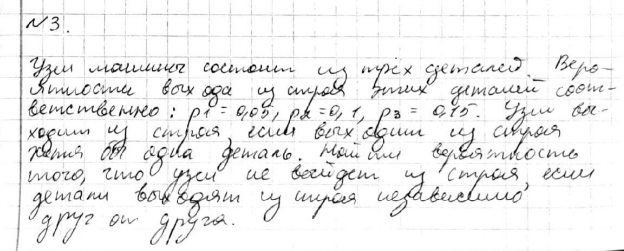 №3.
Узел машины состоит из трёх деталей. Веро-
ятности выхода из строя этих деталей соот-
ветственно: p1 = 0,05, p2 = 0,1, p3 = 0,15. Узел вы-
ходит из строя, если выходит из строя
хотя бы одна деталь. Найти вероятность
того, что узел не выйдет из строя, если
детали выходят из строя независимо
друг от друга.